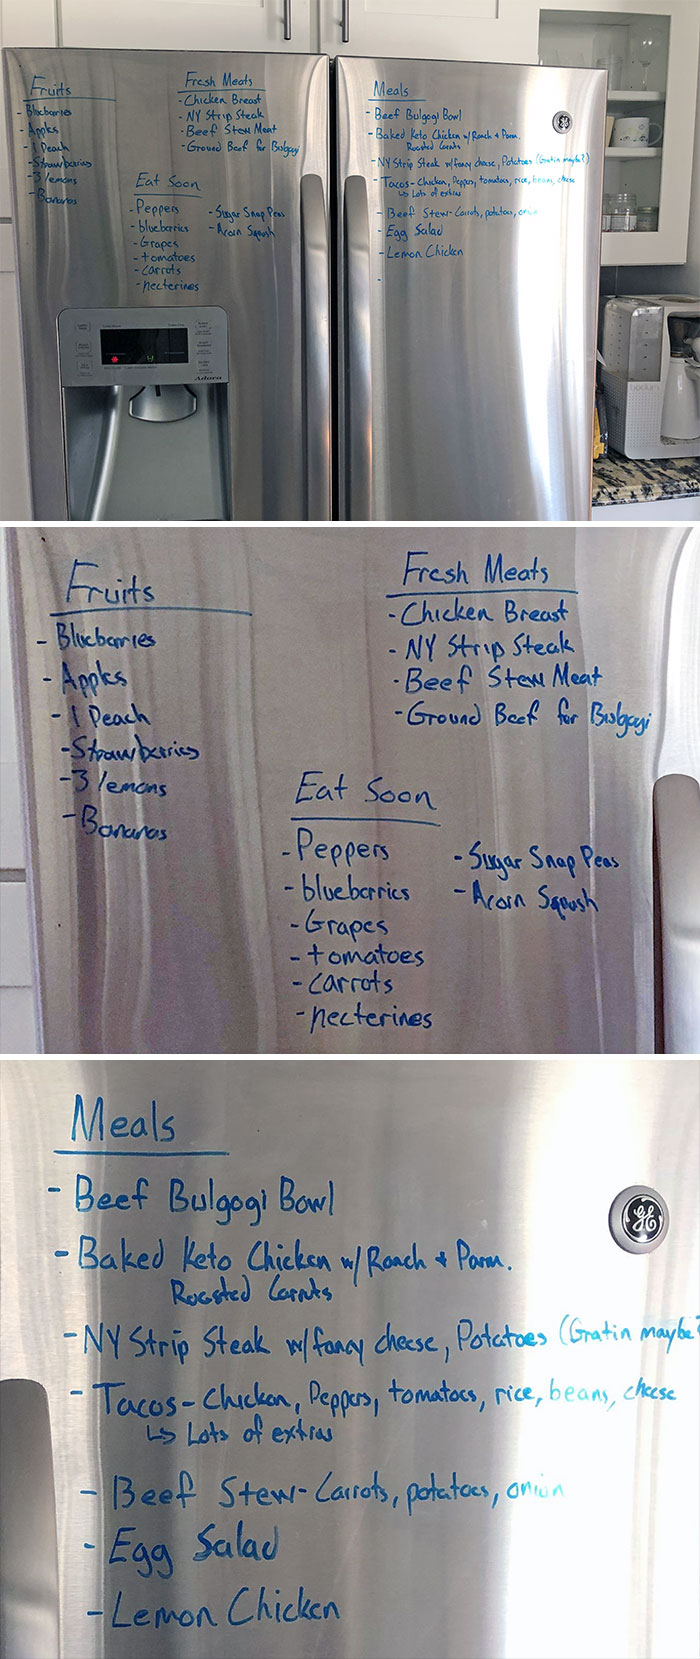 Fruits
- Blueberries
- Apples
- 1 Peach
- Strawberries
- 3 lemons
- Bananas
Fresh Meats
- Chicken Breast
- NY Strip Steak
- Beef Stew Meat
- Ground Beef for Bulgogi
Eat Soon
- Peppers
- blueberries
- Grapes
- tomatoes
- carrots
- necterines
- Sugar Snap Peas
- Acorn Squash
Meals
- Beef Bulgogi Bowl
- Baked Keto Chicken w/ Ranch + Parm.
Roasted Carrots
- NY Strip Steak w/fancy cheese, Potatoes (Gratin maybe?)
- Tacos - Chicken, Peppers, tomatoes, rice, beans, cheese
↳ Lots of extras
- Beef Stew - Carrots, potatoes, onion
- Egg Salad
- Lemon Chicken
-
Adora
bodum
Fruits
- Blueberries
- Apples
- 1 Peach
- Strawberries
- 3 lemons
- Bananas
Fresh Meats
- Chicken Breast
- NY Strip Steak
- Beef Stew Meat
- Ground Beef for Bulgogi
Eat Soon
- Peppers
- blueberries
- Grapes
- tomatoes
- carrots
- necterines
- Sugar Snap Peas
- Acorn Squash
Meals
- Beef Bulgogi Bowl
- Baked Keto Chicken w/ Ranch + Parm.
Roasted Carrots
- NY Strip Steak w/fancy cheese, Potatoes (Gratin maybe?
- Tacos - Chicken, Peppers, tomatoes, rice, beans, cheese
↳ Lots of extras
- Beef Stew - Carrots, potatoes, onion
- Egg Salad
- Lemon Chicken
GE